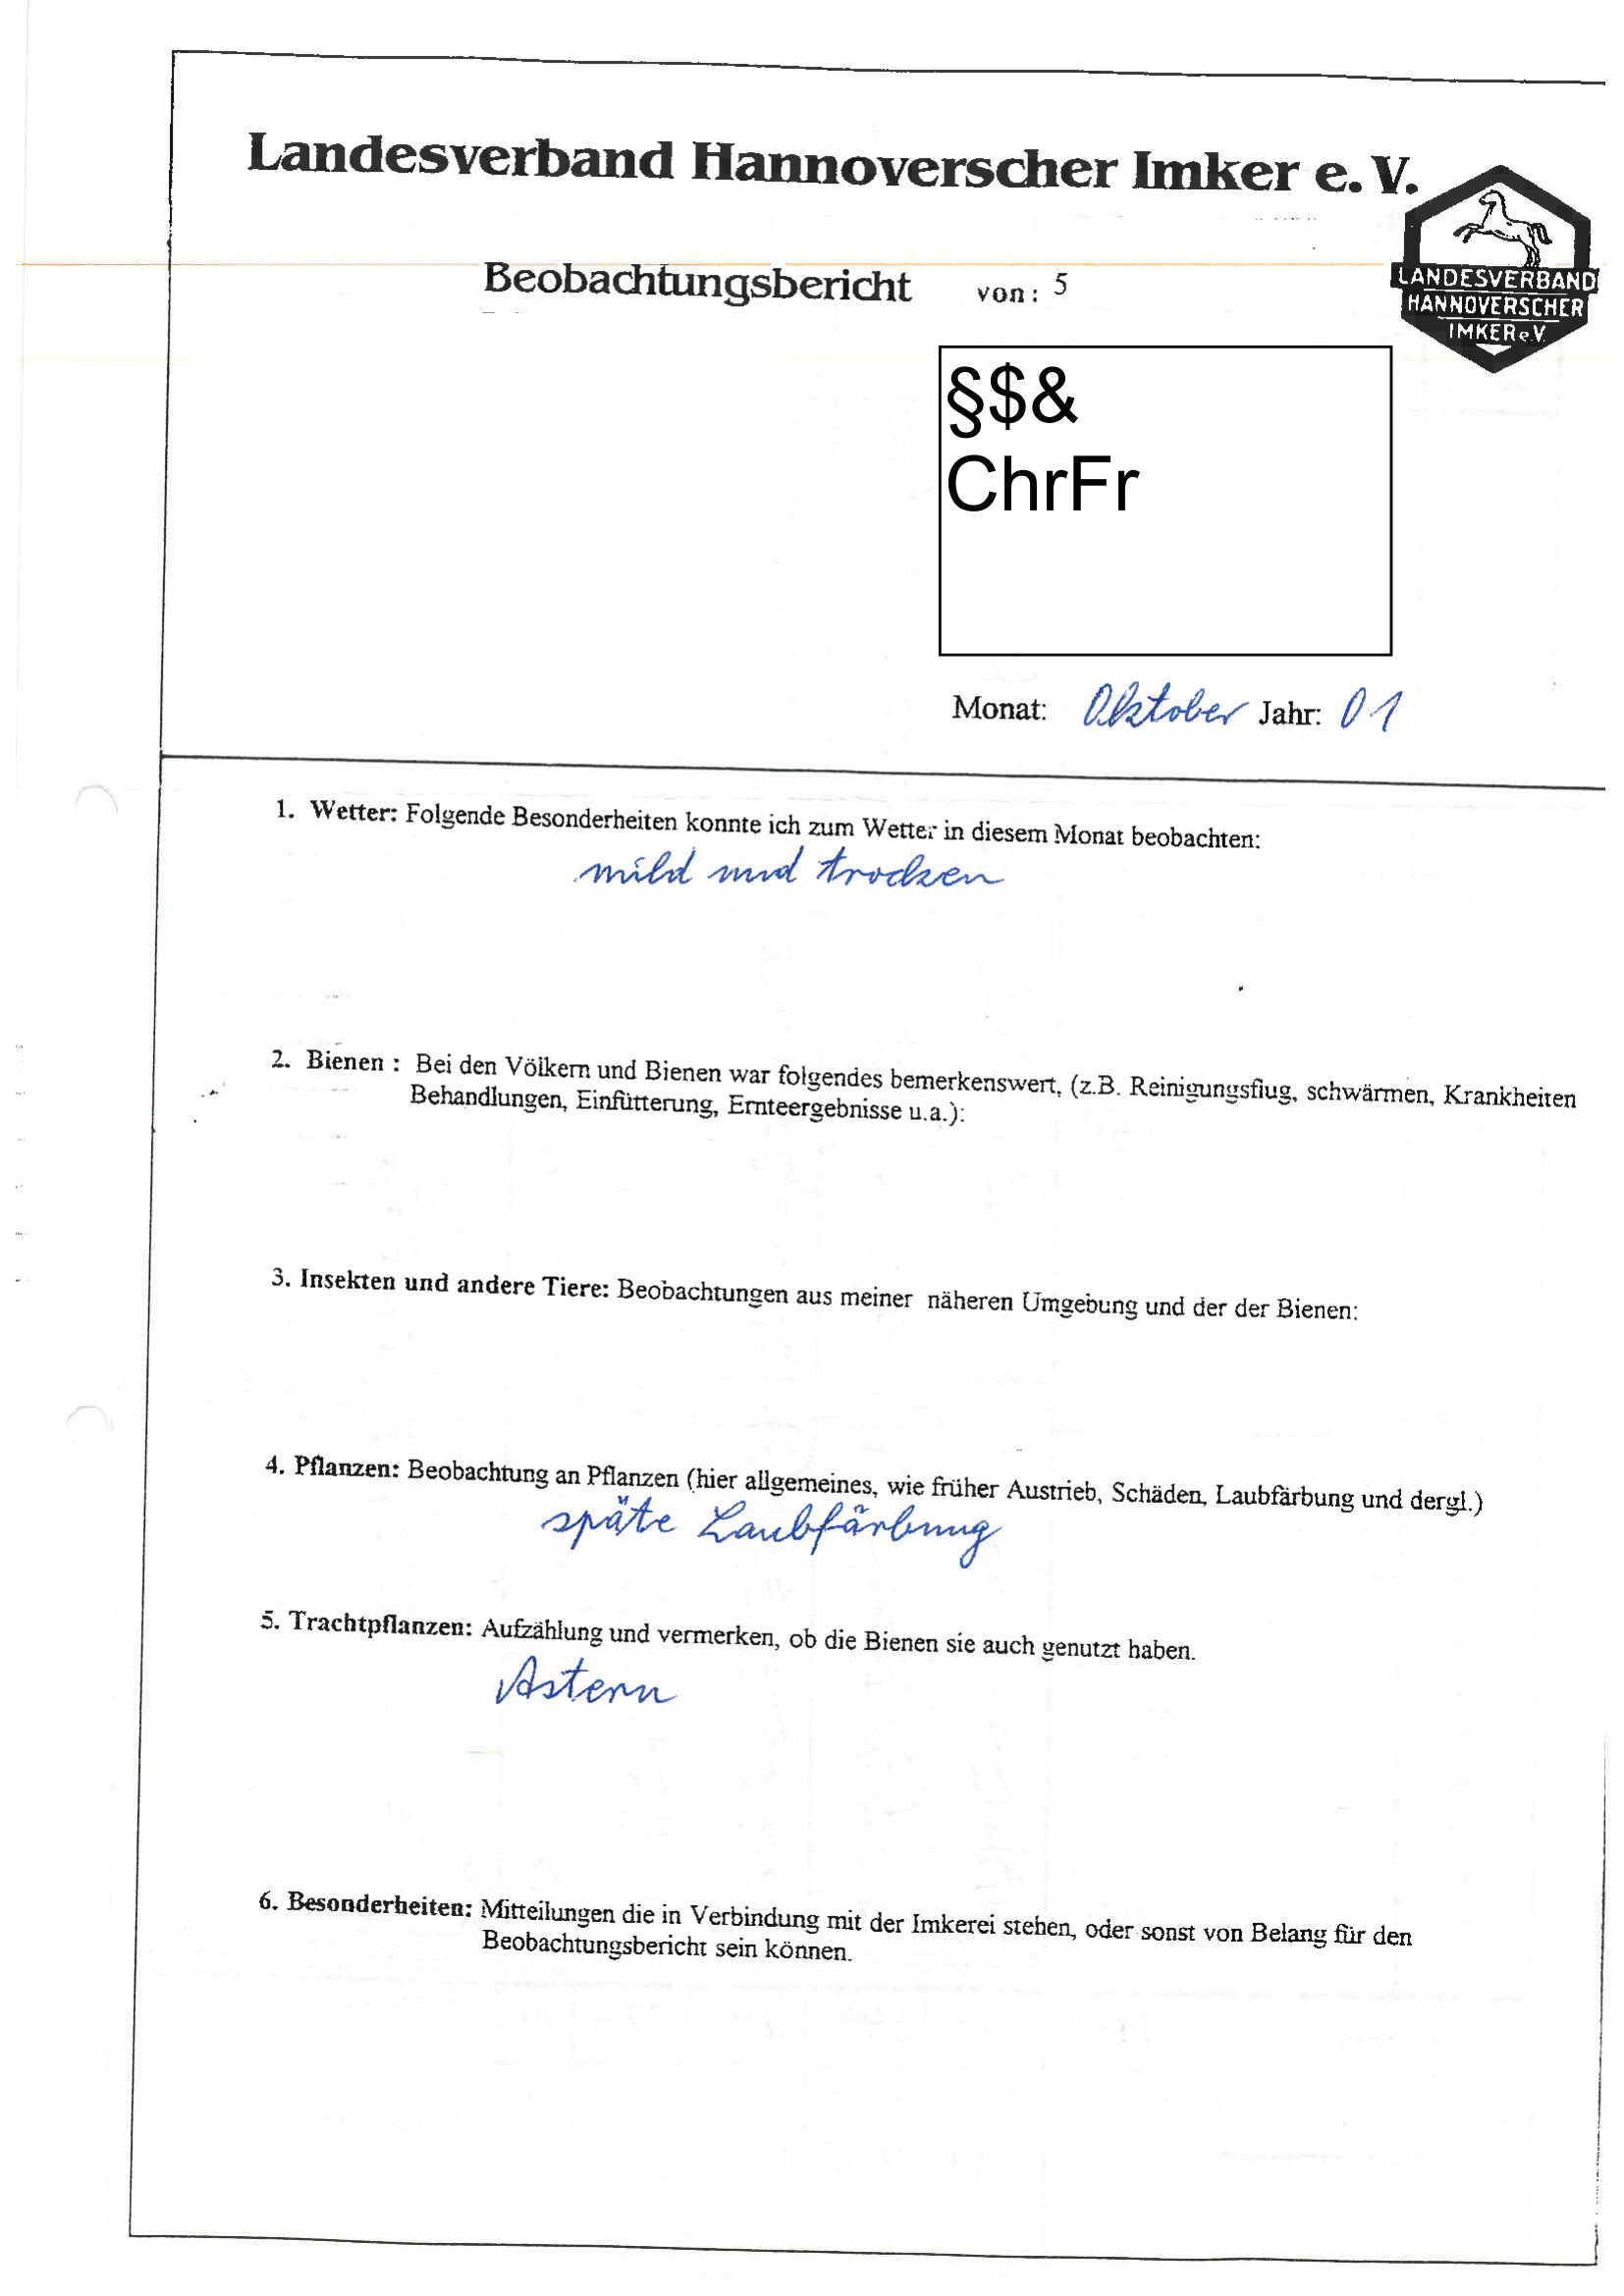 Landesverband Hannoverscher Imker e. V.
LANDESVERBAND
HANNOVERSCHER
IMKER e.V.
Beobachtungsbericht von: 5
§$&
ChrFr
Monat: Oktober Jahr: 01
1. Wetter: Folgende Besonderheiten konnte ich zum Wetter in diesem Monat beobachten:
mild und trocken
2. Bienen : Bei den Völkern und Bienen war folgendes bemerkenswert, (z.B. Reinigungsflug, schwärmen, Krankheiten
Behandlungen, Einfütterung, Ernteergebnisse u.a.):
3. Insekten und andere Tiere: Beobachtungen aus meiner näheren Umgebung und der der Bienen:
4. Pflanzen: Beobachtung an Pflanzen (hier allgemeines, wie früher Austrieb, Schäden, Laubfärbung und dergl.)
späte Laubfärbung
5. Trachtpflanzen: Aufzählung und vermerken, ob die Bienen sie auch genutzt haben.
Astern
6. Besonderheiten: Mitteilungen die in Verbindung mit der Imkerei stehen, oder sonst von Belang für den
Beobachtungsbericht sein können.